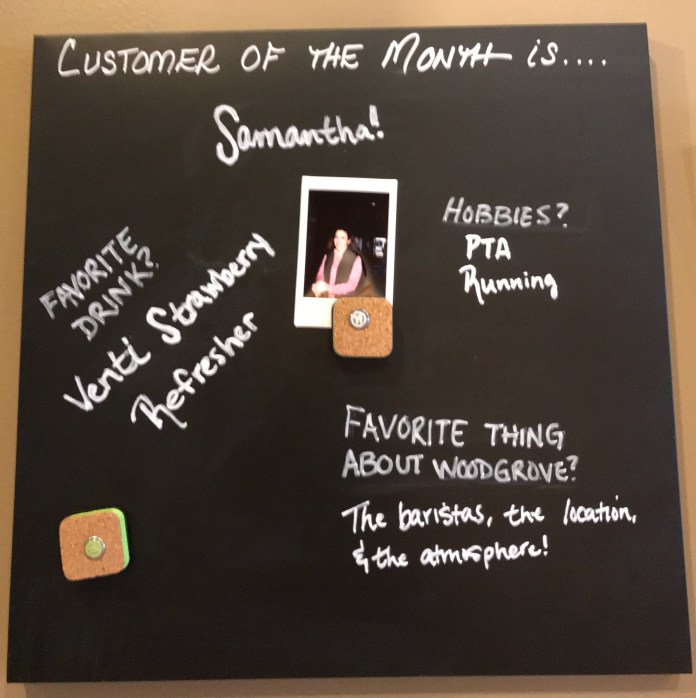 CUSTOMER OF THE MONTH IS....
Samantha!
FAVORITE
DRINK?
Venti Strawberry
Refresher
HOBBIES?
PTA
Running
FAVORITE THING
ABOUT WOODGROVE?
The baristas, the location,
& the atmosphere!